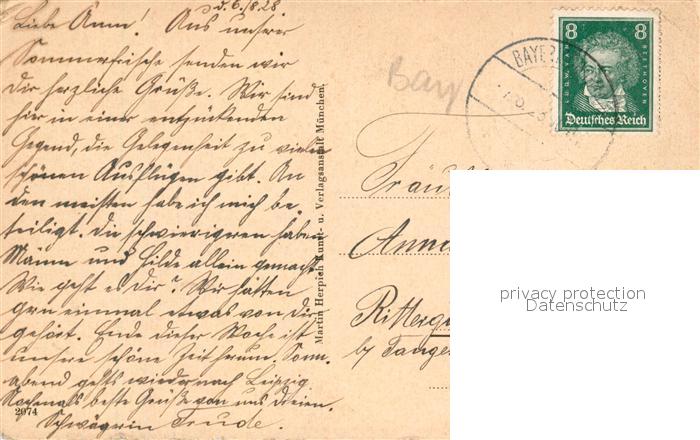 d. 6./8.28
Liebe Änn! Aus unsrer
Sommerfrische senden wir
Dir herzliche Grüße. Wir sind
hier in einer entzückenden
Gegend, die Gelegenheit zu vielen
schönen Ausflügen gibt. An
den meisten habe ich mich be-
teiligt. Die schwierigeren haben
Männe und Hilde allein gemacht.
Wie geht es Dir? Wir hätten
gern einmal etwas von Dir
gehört. Ende dieser Woche ist
unsre schöne Zeit herum. Sonn-
abend gehts wieder nach Leipzig
Nochmals beste Grüße von uns dreien.
Schwägerin Trude.
2074
Martin Herpich Kunst- u. Verlagsanstalt München.
Bay
BAYER
8 8
LUDW. VAN BEETHOVEN
Deutsches Reich
Fräul
Anne
Ritterg
b/ Tange
privacy protection
Datenschutz